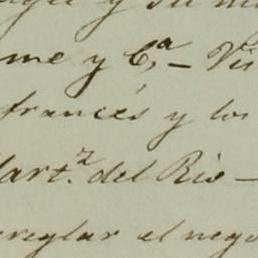 y su
me y C.ª – Vis
francés y los
Mart.z del Rio –
arreglar el nego